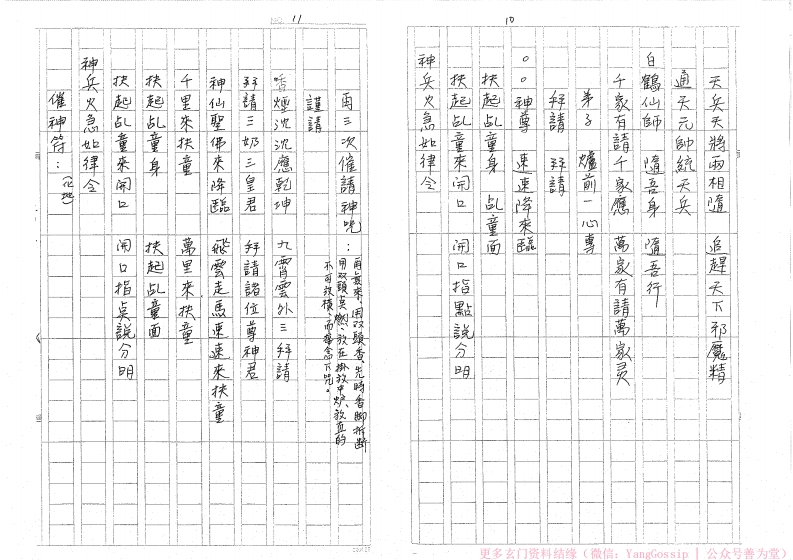 10
天兵天將兩相隨　追趕天下邪魔精
通天元帥統天兵
白鶴仙師　隨吾身　隨吾行
千家有請千家應　萬家有請萬家灵
弟子　爐前一心專
拜請　拜請
○○神尊　速速降來臨
扶起乩童身　乩童面
扶起乩童來開口　開口指點說分明
神兵火急如律令
11
再三次催請神咒：
謹請
香煙沈沈應乾坤　九霄雲外三拜請
拜請三奶三皇君　拜請諸位尊神君
神仙聖佛來降臨　飛雲走馬速速來扶童
千里來扶童　萬里來扶童
扶起乩童身　扶起乩童面
扶起乩童來開口　開口指點說分明
神兵火急如律令
催神符：(化地)
更多玄门资料结缘（微信：YangGossip | 公众号善为堂）